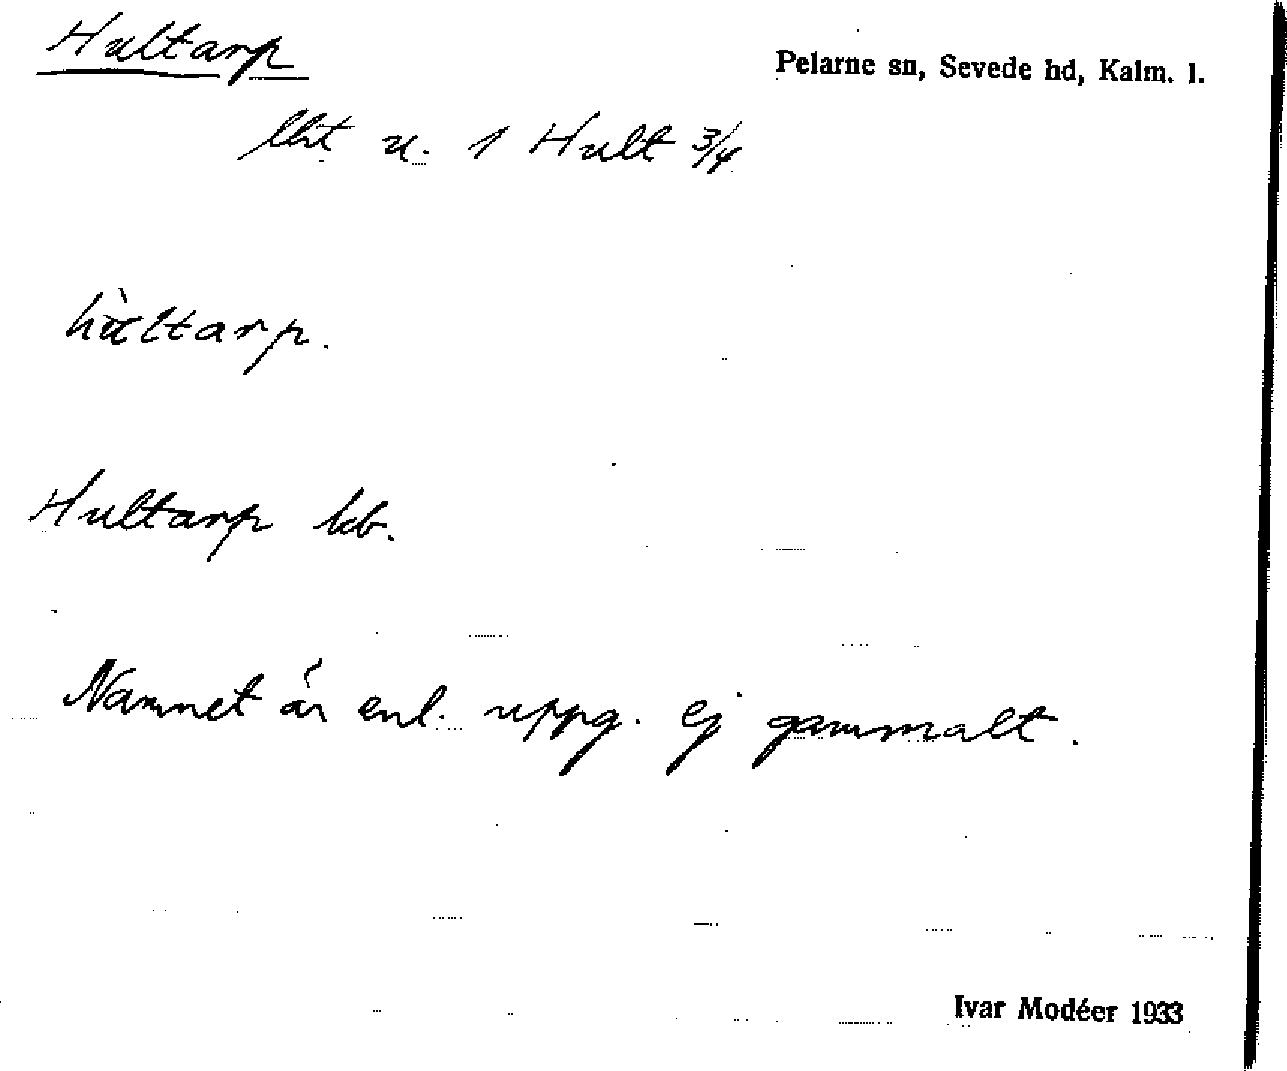 Hultarp
Pelarne sn, Sevede hd, Kalm. l.
lht u. 1 Hult 3/4
hùltarp.
Hultarp kb.
Namnet är enl. uppg. ej gammalt.
Ivar Modéer 1933